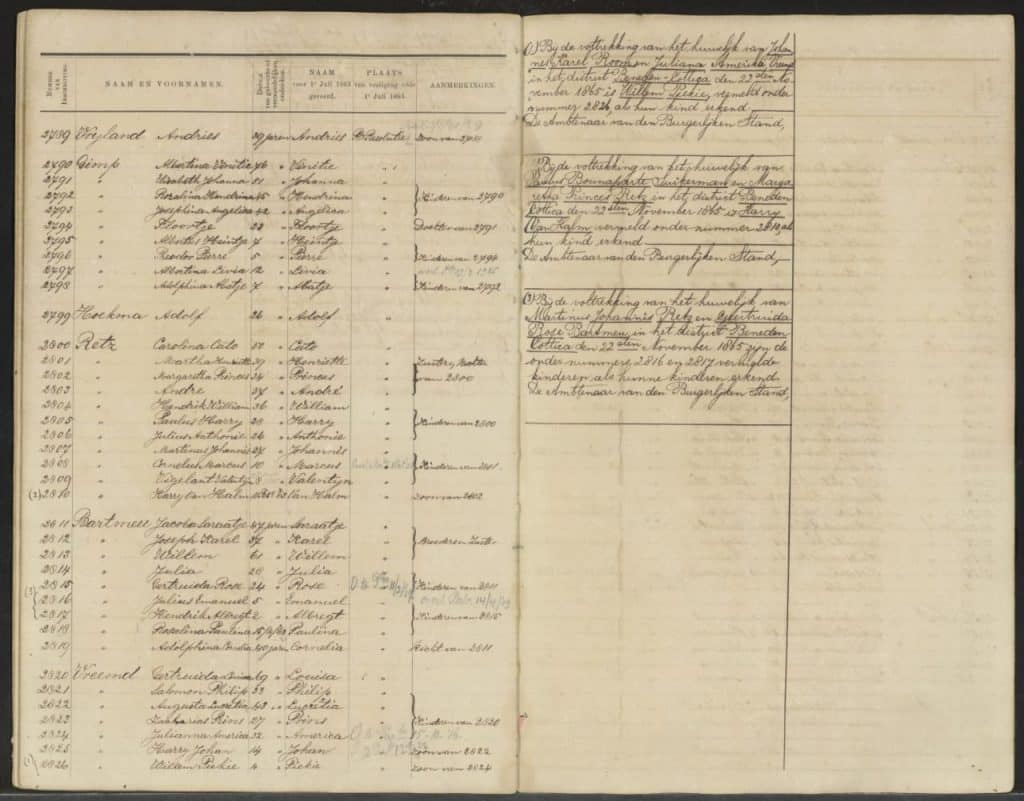 NUMMER VAN INSCHRIJVING. NAAM EN VOORNAMEN. NAAM vóór 1e Juli 1863 gevoerd. PLAATS van vestiging vóór 1e Juli 1863. AANMERKINGEN.
2789 Vrijland Andries 29 jaren Andries zoon van
2790 Gimp Albertina Venitie 76 " Venitie "
2791 " Elisabeth Johanna 51 " Johanna "
2792 " Rosalina Hendrina 45 " Hendrina " Kinderen van 2790
2793 " Josephina Angelica 42 " Angelica "
2794 " Floortje 22 " Floortje " Dochter van 2791
2795 " Heintje 7 " Heintje "
2796 " Pierre 5 " Pierre " Kinderen van 2794
2797 " Albertina Levia 12 " Levia "
2798 " Adolphina Abatje 7 " Abatje " Kinderen van 2792
2799 Hoekma Adolf 26 " Adolf "
2800 Retz Carolina Cato 50 " Cato "
2801 " Martha Henriette 29 " Henriette "
2802 " Margaretha Princes 24 " Princes " van 2800
2803 " Andre " André "
2804 " Hendrik William 36 " William "
2805 " Paulus Harry 28 " Harry " Kinderen van 2800
2806 " Julius Anthonie 26 " Anthonie "
2807 " Martinus Johannis " Johannis "
2808 " Cornelus Marcus 10 " Marcus " Kinderen van 2801
2809 " Vigelant Valentijn 8 " Valentijn "
(2) 2810 " Harry van Halm Van Halm " zoon van 2802
2811 Bartmeu Jacoba Saraatje 47 jaren Saraatje "
2812 " Joseph Karel " Karel " Broeders
2813 " Willem 61 " Willem "
2814 " Julia 28 " Julia "
(3) 2815 " Gertruida Rose 24 " Rose " Kinderen van 2811
2816 " Julius Emanuel 5 " Emanuel "
2817 " Hendrik Albregt 2 " Albregt " Kinderen van 2815
2818 " Roselina Paulina Paulina "
2819 " Adolphina Cornelia 40 jaren Cornelia " Nicht van 2811
2820 Vreemd Gertruida Louisa 69 " Louisa "
2821 " Salomon Philip 32 " Philip "
2822 " Augusta Lucretia 43 " Lucretia "
2823 " Zacharias Prins 27 " Prins " Kinderen van 2820
2824 " Julianna America 32 " America "
2825 " Harry Johan 14 " Johan " zoon van 2822
(1) 2826 " Willem Piekie 4 " Piekie " zoon van 2824
(1) Bij de voltrekking van het huwelijk van Johan
nes Karel Room en Juliana Amerika
in het district Beneden-Cottica den 22sten No
vember 1865 is Willem Piekie, vermeld onder
nummer 2826, als hun kind erkend.
De Ambtenaar van den Burgerlijken Stand,
(2) Bij de voltrekking van het huwelijk van
Paulus Bounaparte Suikerman en Marga
retha Princes Retz in het district Beneden
Cottica den 22sten November 1865 is Harry
Van Halm vermeld onder nummer 2810, als
hun kind erkend
De Ambtenaar van den Burgerlijken Stand,
(3) Bij de voltrekking van het huwelijk van
Martinus Johannis Retz en Gertruida
Rose Bartmeu in het district Beneden
Cottica den 22sten November 1865 zijn de
onder nummers 2816 en 2817 vermelde
kinderen als hunne kinderen erkend
De Ambtenaar van den Burgerlijken Stand,